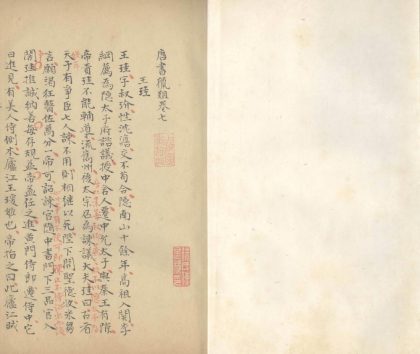 唐書𢑥組卷七
王珪
王珪字叔玠性沈澹交不苟合隱南山十餘年高祖入關李
綱薦為隱太子府諮議授中舍人遷中允太子與秦王有隙
帝責珪不能輔導流嶲州後太宗召為諫議大夫珪曰古者
天子有爭臣七人諫不用則相繼以死陛下開聖德收采芻
言願竭狂瞽佐萬分一帝可詔諫官隨中書門下三品官入
閤珪推誠納善每存規益帝益任之進黃門侍郎遷侍中它
日進見有美人侍側本廬江王瑗姬也帝指之曰此廬江賊